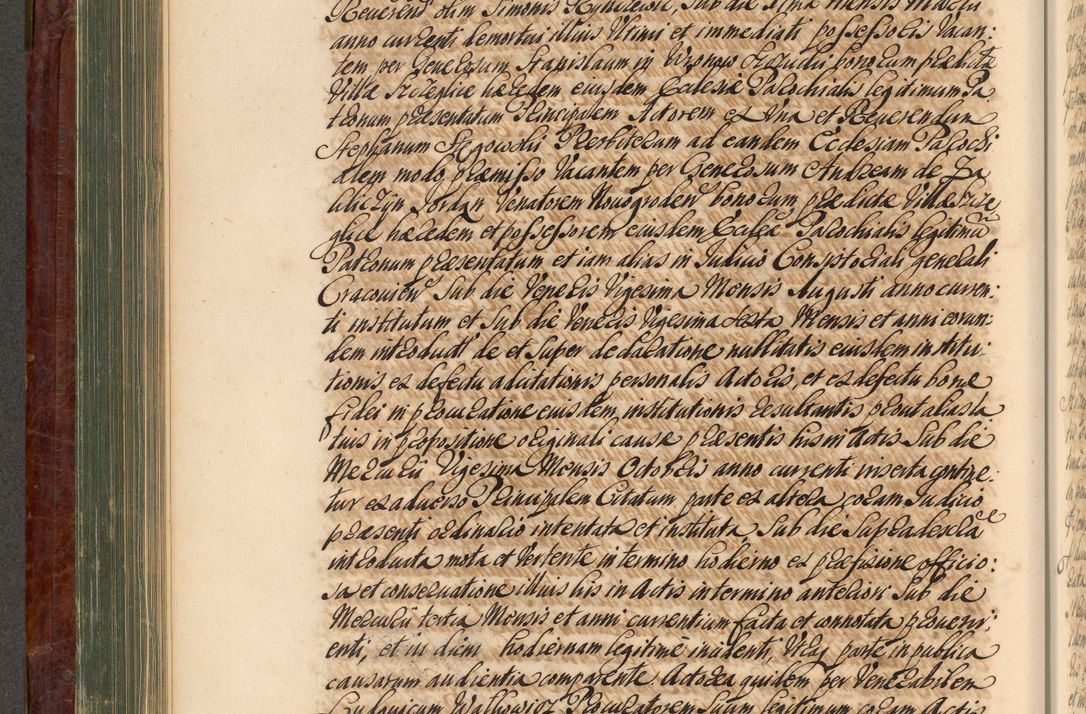 Reverendi olim Simonis Rynicewic, sub die
anno currenti demortui illius Ultimi et immediati possessoris Vacan:
tem per Generosum Stanislaum in Wronow bonorum prædictæ
Villæ Szczeglice hæredem eiusdem Ecclesiæ Parochialis legitimum Pa
tronum præsentatum Principalem Actorem ex Una et Reverendum
Stephanum Presbiterum ad eandem Ecclesiam Parochi
alem modo præmisso Vacantem per Generosum Andream de Za
kliczyn Jordan Venatorem Novogroden bonorum prædictæ Villæ Szcze
glice hæredem et possessorem eiusdem Eccleæ Parochialis legitimũ
Patronum præsentatum et iam alias in Judicio Consistoriali generali
Cracovien Sub die Veneris Vigesima Mensis Augusti anno curren:
ti institutum et Sub die Veneris Vigesima sexta Mensis et anni eorun
dem introduct' de et super declaratione nullitatis eiusdem institu:
tionis ex defectu aditationis personalis Actoris, et ex defectu bonæ
fidei in procuratione eiusdem, institutionis resultantis prout alias la
tius in propositione originali causæ præsentis his in Actis Sub die
Mercurii Vigesima Mensis Octobris anno currenti inserta contine
tur ex adverso Principalem Citatum parte ex altera coram Judicio
præsenti ordinario intentata et instituta, Sub die Supradicta
introducta mota et Vertente in termino hodierno ex præfixione officio:
sa et conservatione illius his in Actis in termino anteriori Sub die
Mercurii tertia Mensis et anni currentium facta et connotata proveni:
enti, et in diem hodiernam legitime incidenti, Utraq parte in publica
causarum audientia comparente. Actorea quidem per Venerabilem
Ludovicum Walkowicz Procuratorem suum legitimum coram Actis